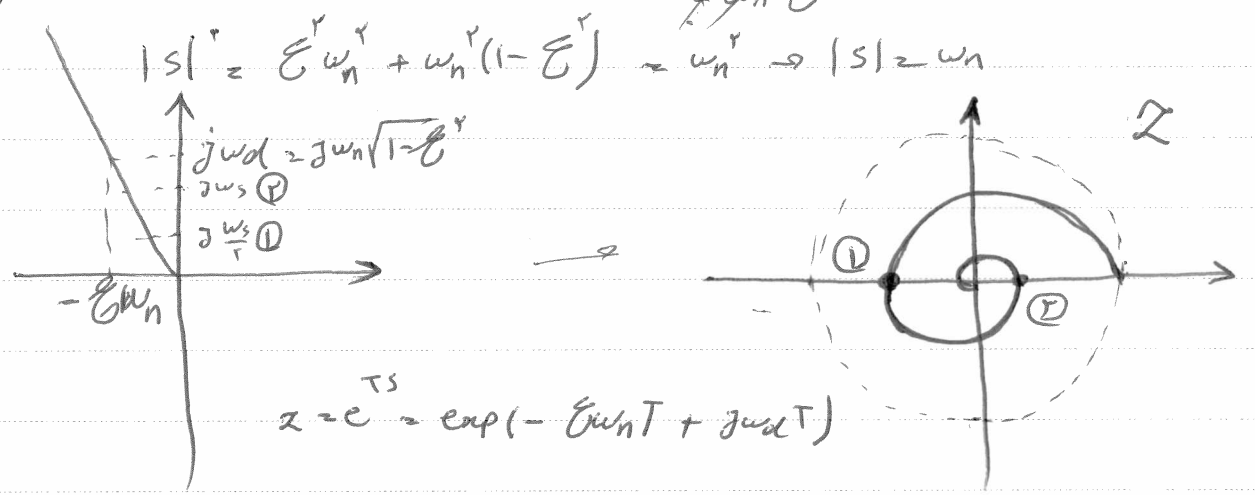 |s|^۲ = ξ^۲ ω_n^۲ + ω_n^۲ (1 - ξ^۲) = ω_n^۲ → |s| = ω_n
Z
jω_d = jω_n √(1-ξ^۲)
jω_s ②
j ω_s/۲ ①
①
-ξω_n
②
z = e^{TS} = exp(-ξω_nT + jω_dT)